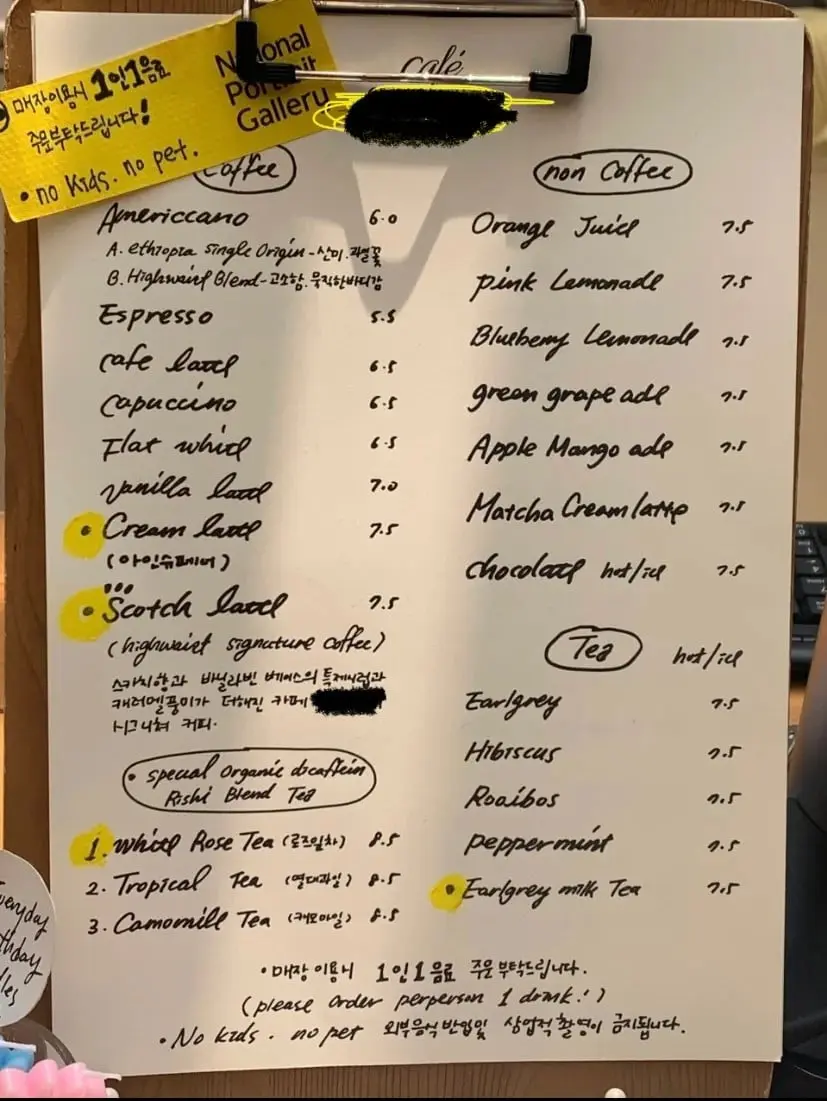 매장이용시 1인1음료
주문부탁드립니다!
• no kids. no pet.
National
Portrait
Gallery
café
Coffee
Americcano 6.0
A. ethiopia single Origin - 산미. 과일꽃
B. Highwaist Blend - 고소함. 묵직한바디감
Espresso 5.5
cafe latte 6.5
Capuccino 6.5
Flat white 6.5
vanilla latte 7.0
• Cream latte 7.5
(아인슈페너)
• Scotch latte 7.5
(highwaist signature coffee)
스카치향과 바닐라빈 베이스의 특제시럽과
캐러멜풍미가 더해진 카페
시그니쳐 커피.
• special Organic dicaffein
Rishi Blend Tea
1. White Rose Tea (로즈잎차) 8.5
2. Tropical Tea (열대과일) 8.5
3. Camomill Tea (캐모마일) 8.5
non Coffee
Orange Juice 7.5
pink Lemonade 7.5
Blueberry Lemonade 7.5
green grape ade 7.5
Apple Mango ade 7.5
Matcha Cream latte 7.5
chocolate hot/ice 7.5
Tea hot/ice
Earlgrey 7.5
Hibiscus 7.5
Rooibos 7.5
peppermint 7.5
• Earlgrey milk Tea 7.5
• 매장이용시 1인1음료 주문부탁드립니다.
(please order perperson 1 drink!)
• No kids. no pet 외부음식 반입및 상업적촬영이 금지됩니다.
everyday